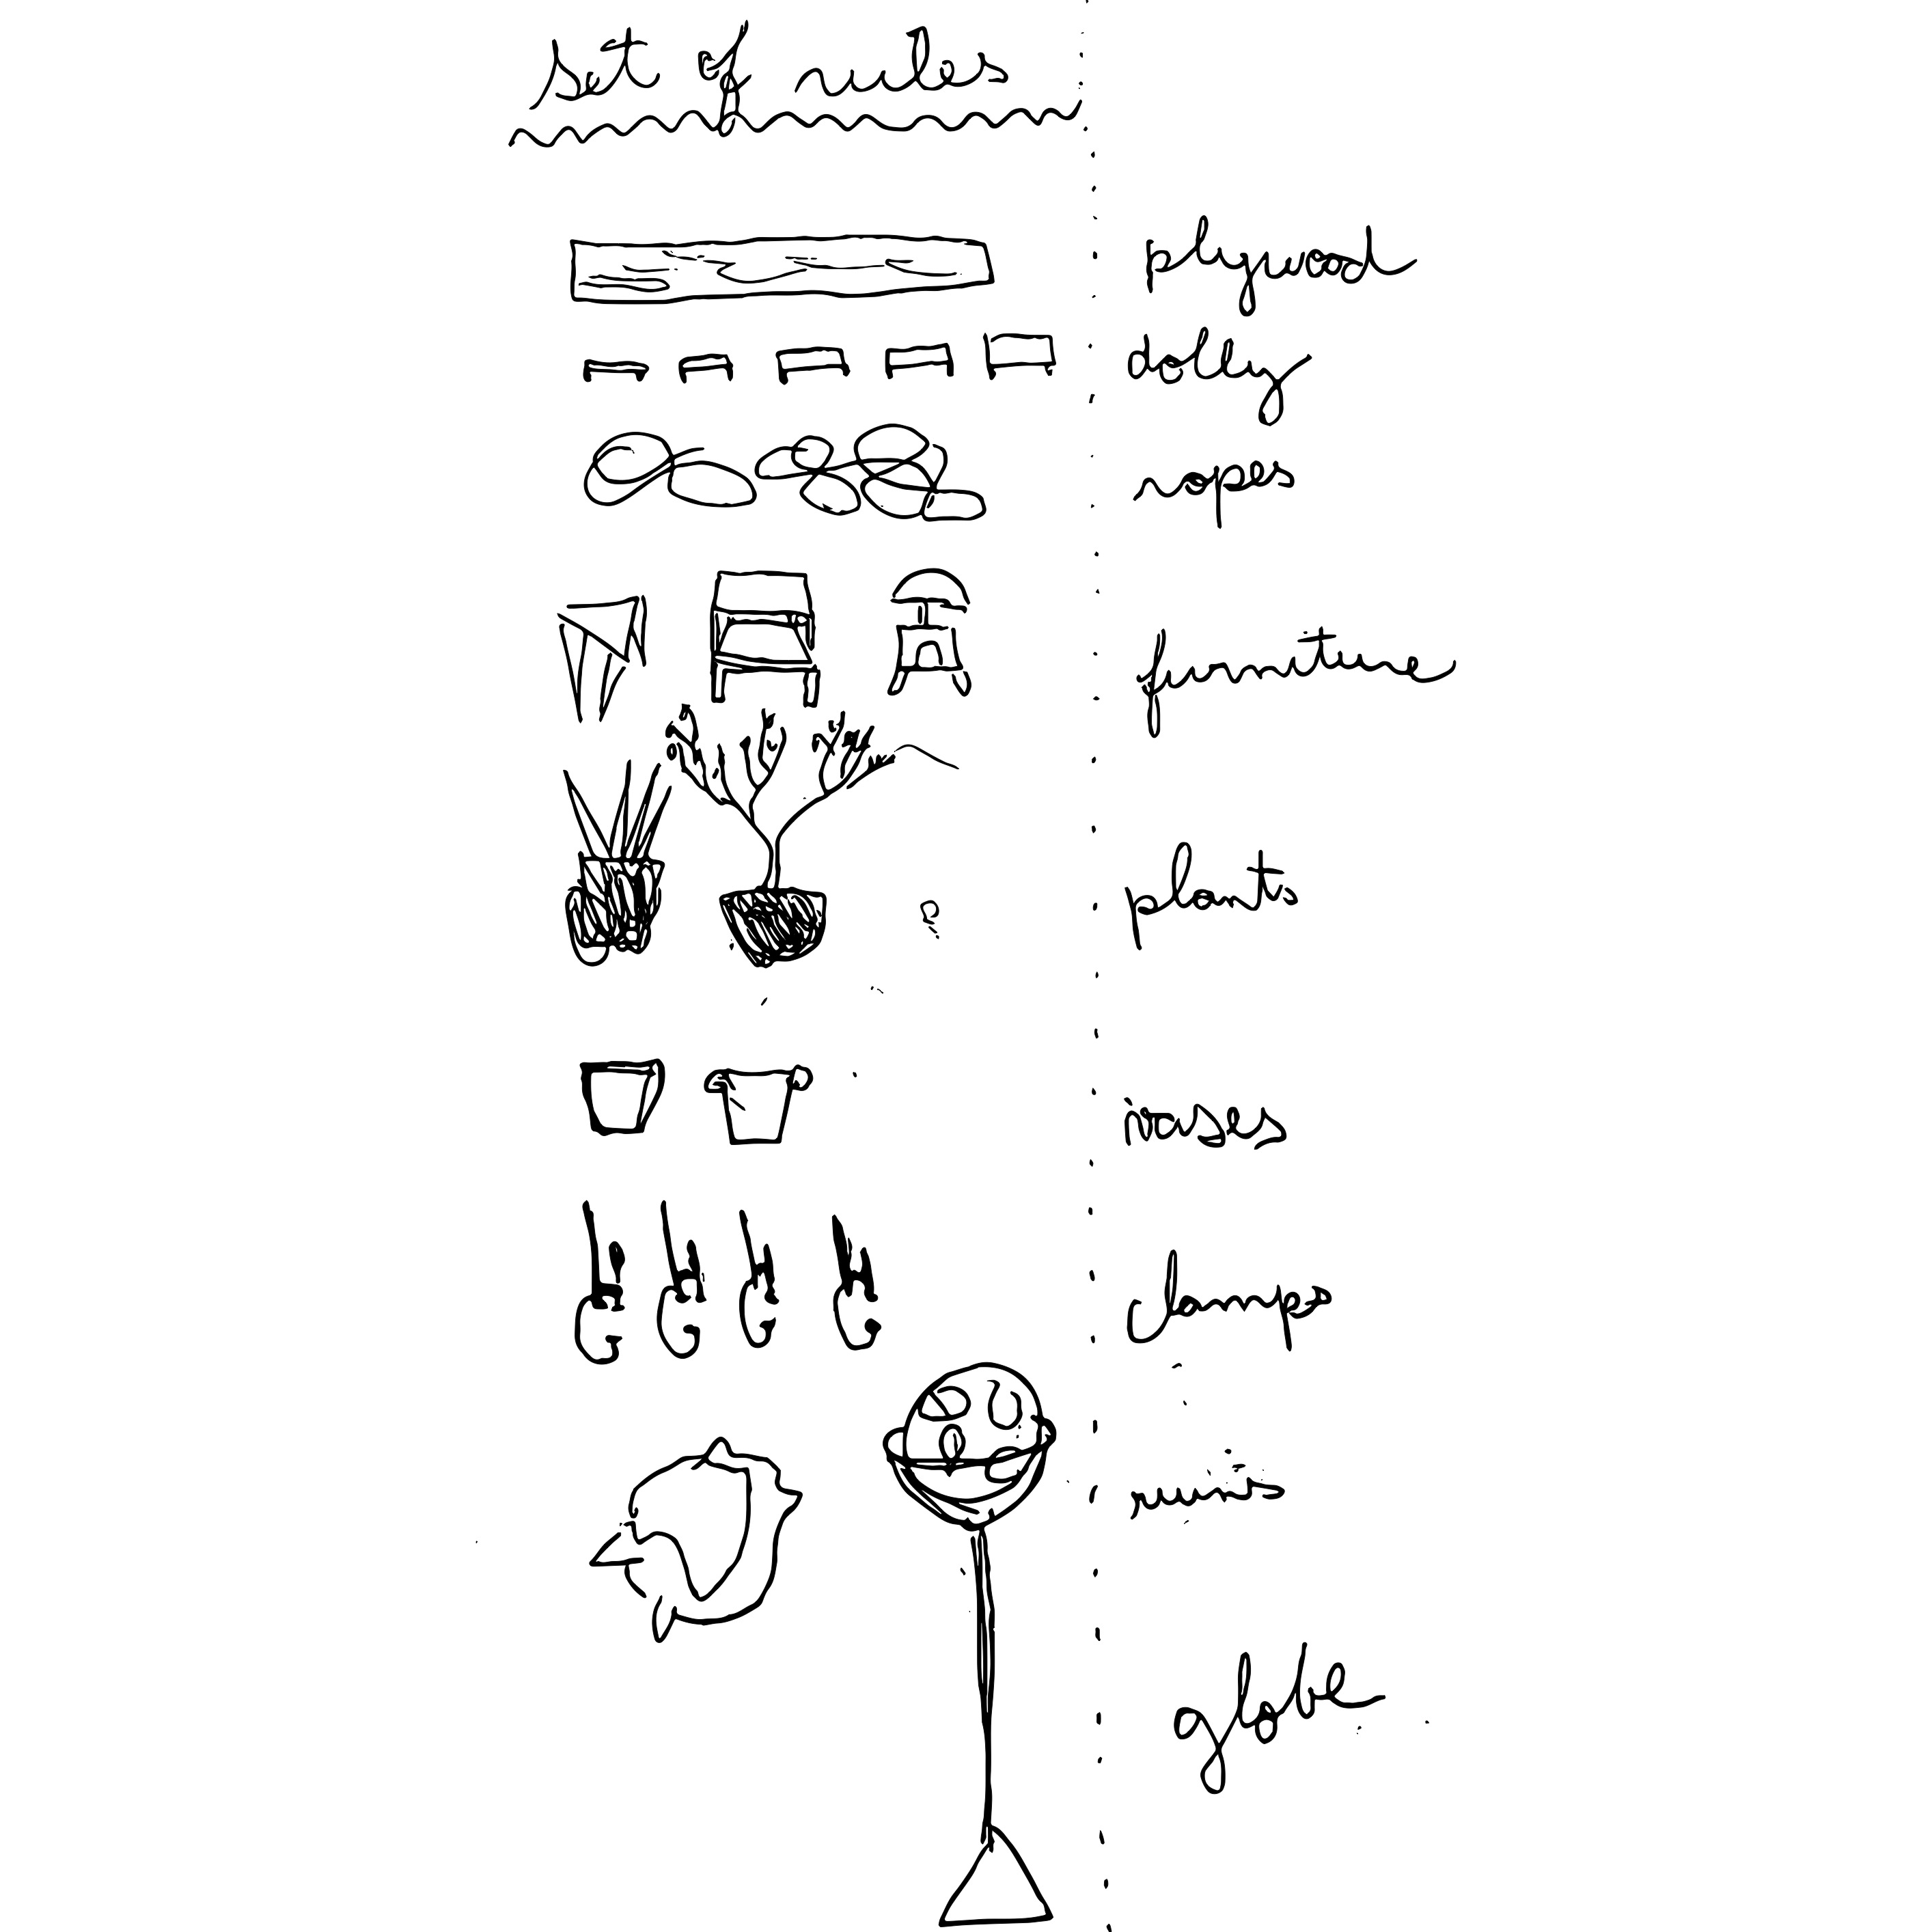 set of rules
plywood
dolly
ropes
furniture
plants
vases
clamps
globe